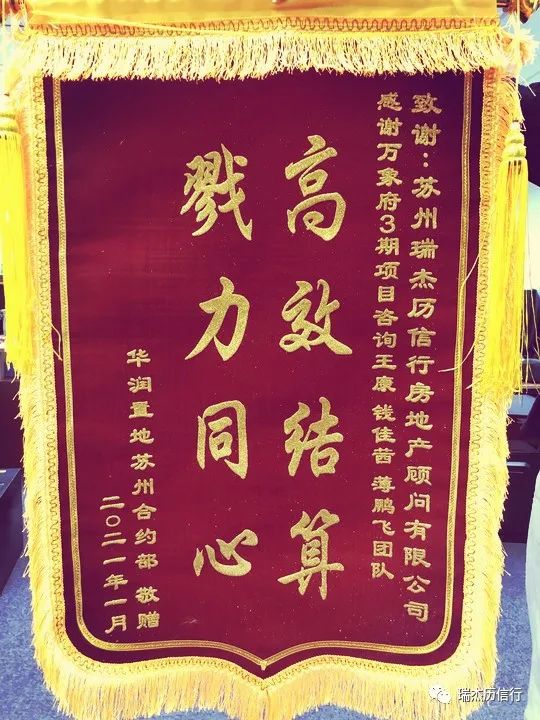 致谢：苏州瑞杰历信行房地产顾问有限公司
感谢万象府3期项目咨询王康 钱佳茜 薄鹏飞团队
高效结算
戮力同心
华润置地苏州合约部 敬赠
二〇二一年一月
瑞杰历信行